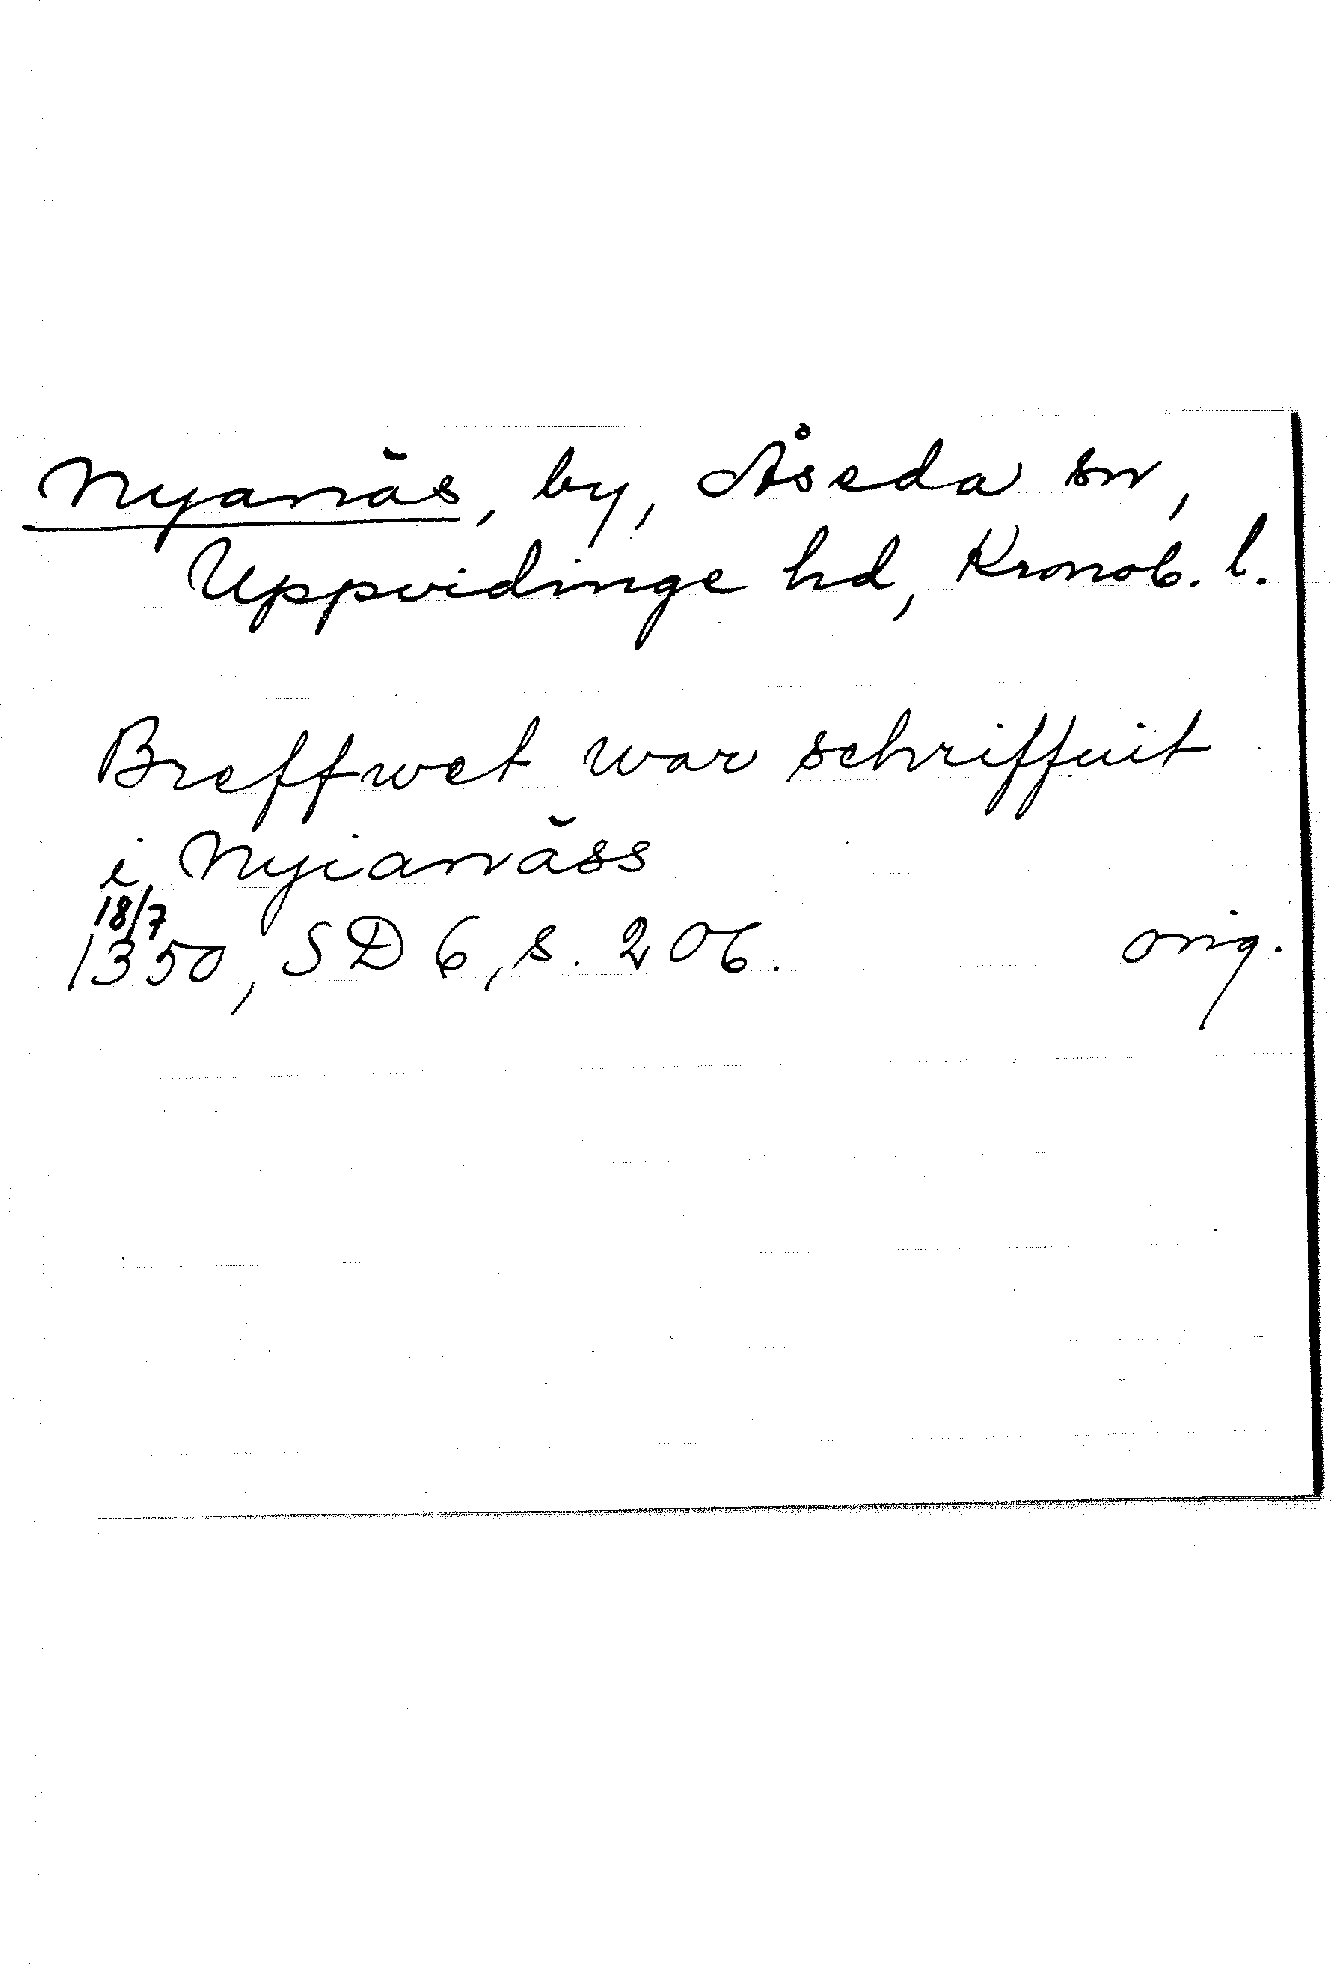 Nyanäs, by, Åseda sn,
Uppvidinge hd, Kronob. l.
Breffwet war schriffuit
i Nyianäss
18/7
1350, SD 6, s. 206. orig.